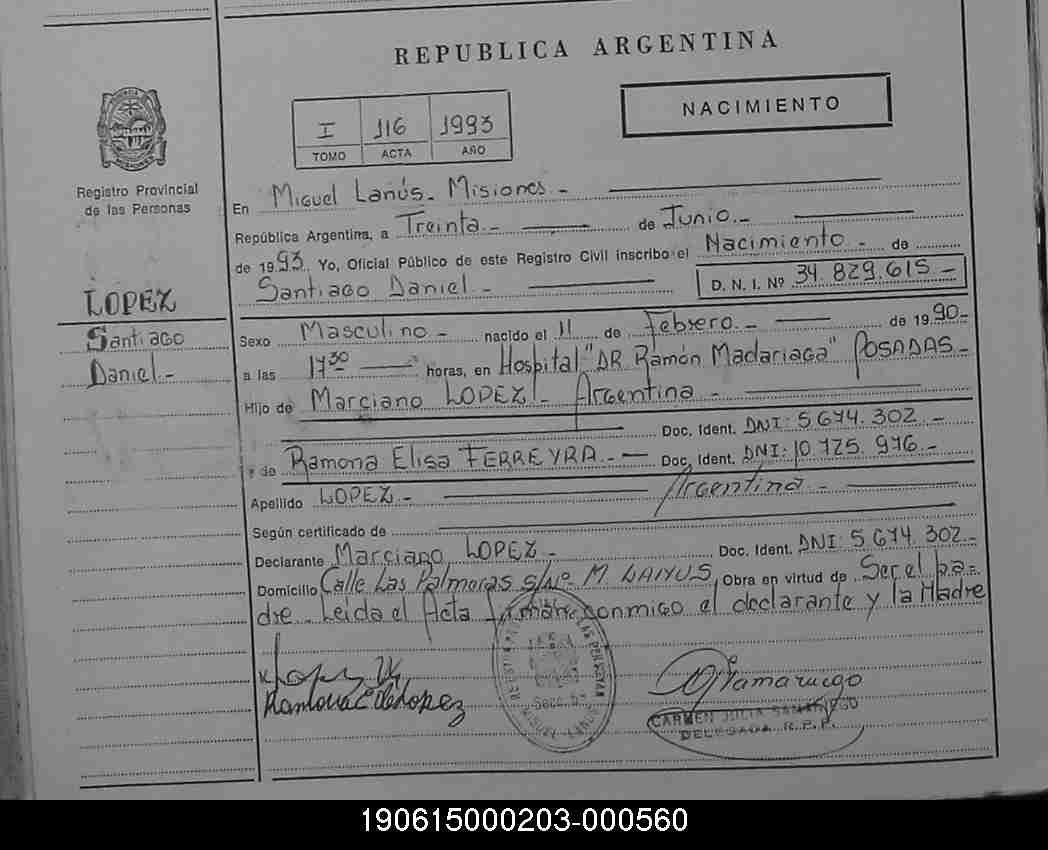 REPUBLICA ARGENTINA
NACIMIENTO
I 116 1993
TOMO ACTA AÑO
Registro Provincial
de las Personas
LOPEZ
Santiago
Daniel.-
En Miguel Lanús.- Misiones.-
República Argentina, a Treinta.- de Junio.-
de 1993. Yo, Oficial Público de este Registro Civil inscribo el Nacimiento.- de
Santiago Daniel.- D. N. I. Nº 34.829.615.-
Sexo Masculino.- nacido el 11 de Febrero.- de 1990.-
a las 17 30 horas, en Hospital "DR. Ramón Madariaga" POSADAS.-
Hijo de Marciano LOPEZ.- Argentina.-
Doc. Ident. DNI: 5.674.302.-
y de Ramona Elisa FERREYRA.- Doc. Ident. DNI: 10.725.976.-
Apellido LOPEZ.- Argentina.-
Según certificado de
Declarante Marciano LOPEZ.- Doc. Ident. DNI: 5.674.302.-
Domicilio Calle Las Palmeras s/Nº M. LANUS. Obra en virtud de Ser el pa=
dre.- Leida el Acta conmigo el declarante y la Madre
Lopez
Ramona E de Lopez
CARMEN JULIA SAMANIEGO
DELEGADA R.P.P.
190615000203-000560